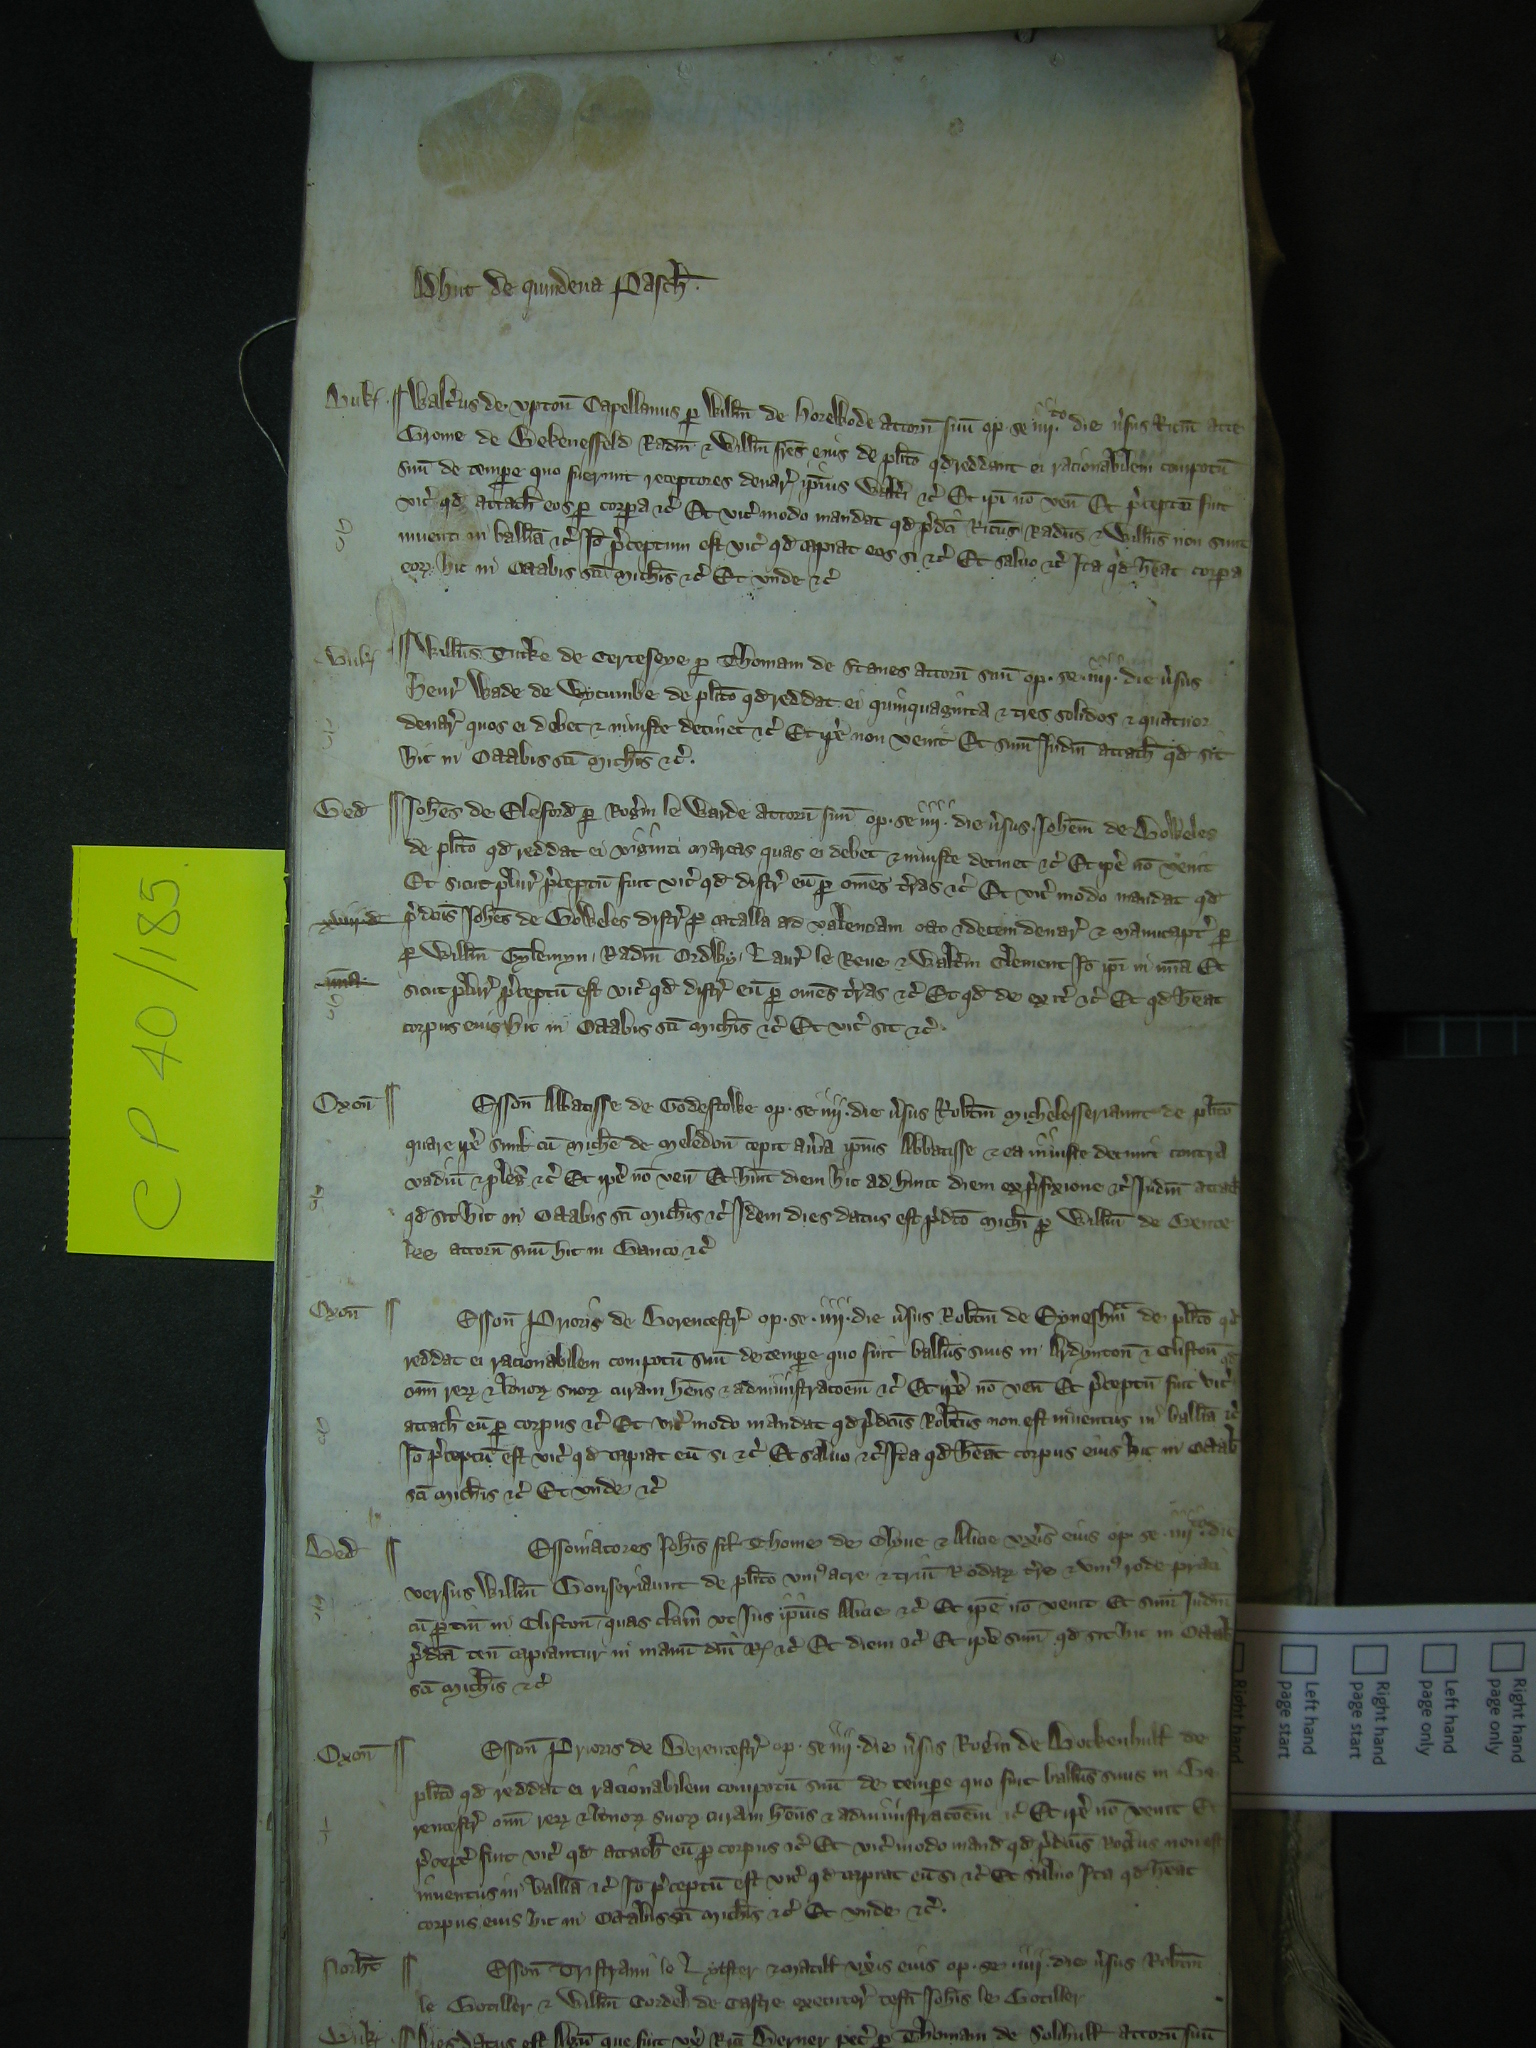 Adhuc de quindena Pasch.
Buk Walts de Upton Capellanus p Willm de Horewode attorn suu op se iiijto die vsus Ricm atte
Grome de Bekenesfeld Radm & Willm fres eius de plito qd reddant ei racionabilem compotu
suu de tempe quo fuerunt receptores denar ipius Walti &c Et ipi no ven Et pceptu fuit
vic qd attach eos p corpa &c Et vic modo mandat qd pdci Ricus Radus & Willms non sunt
inventi in ballia &c Io pceptum est vic qd capiat eos si &c Et salvo &c Ita qd heat corpa
eor hic in Octabis sci Michis &c Et unde &c
Buk Willms Tuke de Certeseye p Thomam de Stanes attorn suu op se iiij die vsus
Henr Wade de Wycumbe de plito qd reddat ei quinquaginta & tres solidos & quatuor
denar quos ei debet & iniuste detinet &c Et ipe non venit Et sum Judm attach qd sit
hic in Octabis sci Michis &c
Bed Johes de Eleford p Rogm le Warde attorn suu op se iiij die vsus Johem de Bolkeles
de plito qd reddat ei viginti marcas quas ei debet & iniuste detinet &c Et ipe no venit
Et sicut plur pceptu fuit vic qd distr eu p omes tras &c Et vic modo mandat qd
pdcus Johes de Bolkeles distr p catalla ad valenciam octo & decem denar & manucapt p
p Willm Gylemyn Radm Ordwy Laur le Reve & Waltm Clement Io ipi in mia Et
sicut plur pceptu est vic qd distr eu p omes tras &c Et qd de exit &c Et qd heat
corpus eius hic in Octabis sci Michis &c Et vic sit &c
Oxon Esson Abbatisse de Godestowe op se iiij die vsus Robtm Michelesseriaunt de plito
quare ipe simul cu Miche de Meledon cepit avia ipius Abbatisse & ea iniuste detinuit contra
vadiu & pleg &c Et ipe no ven Et huit diem hic ad hunc diem ex pfixione &c Judm attach
qd sit hic in Octabis sci Michis &c Idem dies datus est pdco Michi p Willm de Gence
attorn suu hic in Banco &c
Oxon Esson Prioris de Berencestr op se iiij die vsus Robtm de Eynesham de plito qd
reddat ei racionabilem compotu suu de tempe quo fuit ballus suus in Ardynton & Clifton &
omi rer & bonor suor curam hens & administracoem &c Et ipe no ven Et pceptu fuit vic
attach eu p corpus &c Et vic modo mandat qd pdcus Robtus non est inventus in ballia &c
Io pceptu est vic qd capiat eu si &c Et salvo &c Ita qd heat corpus eius hic in Octab
sci Michis &c Et unde &c
Bed Essoniatores Johis fil Thome de Clyve & Alicie uxis eius op se iiijto die
versus Willm Gonseriaunt de plito uni acre & triu rodar tre & uni rode prati
cu ptin in Clifton quas clam ut jus ipius Alicie &c Et ipe no venit Et sum Judm
pdca ten capiantur in manu dni R &c Et diem &c Et ipe sum qd sit hic in Octab
sci Michis &c
Oxon Esson Prioris de Berencestr op se iiij die vsus Rogm de Bockenhull de
plito qd reddat ei racionabilem compotu suu de tempe quo fuit ballus suus in Be
rencestr omi rer & bonor suor curam hens & administracoem &c Et ipe no venit Et
pcept fuit vic qd attach eu p corpus &c Et vic modo mand qd pdcus Rogus non est
inventus in ballia &c Io pceptu est vic qd capiat eu si &c Et salvo Ita qd heat
corpus eius hic in Octabis sci Michis &c Et unde &c
Norht Esson Tristrami le Lytster & Matill uxis eius op se iiij die vsus Robtm
le Botiller & Willm Cordel de Castre executor testi Johis le Botiller
Buk Dies datus est Agn que fuit ux Rici Berner pet p Thomam de Solhull attorn suu
CP 40/185
Right hand page only
Left hand page only
Right hand page start
Left hand page start
Right hand